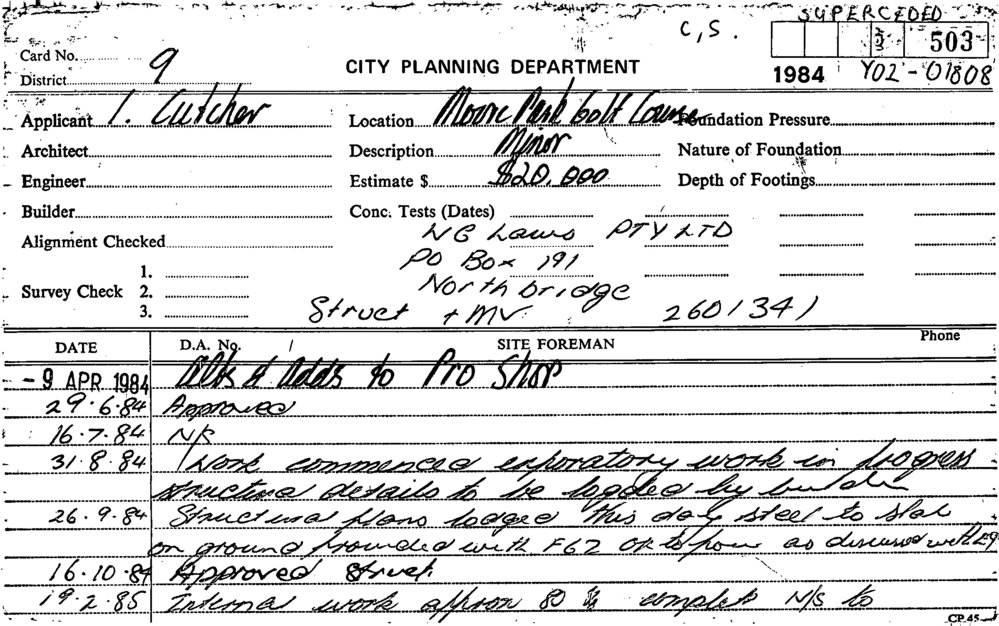 SUPERCEDED
C,S.
503
Card No.
1984 Y02-01808
District 9
CITY PLANNING DEPARTMENT
Applicant I. Cutcher Location Moore Park Golf Course Foundation Pressure
Architect Description Minor Nature of Foundation
Engineer Estimate $ $20,000 Depth of Footings
Builder Conc. Tests (Dates)
Alignment Checked WG Laws PTY LTD
PO Box 191
1.
Survey Check 2. Northbridge
3. Struct + MV 2601341
DATE D.A. No. / SITE FOREMAN Phone
-9 APR 1984 Alts & Adds to Pro Shop
29.6.84 Approved
16.7.84 N/S
31.8.84 Work commenced exporatory work in progress
structural details to be lodged by builder
26.9.84 Structural plans lodged this day steel to slab
on ground provided with F62 OK to pour as discussed with
16.10.84 Approved Struct.
19.2.85 Internal work approx 80 % complete N/S to
CP.45